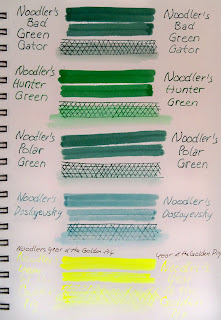 Noodler's Noodler's
Bad Bad
Green Green
Gator Gator
Noodler's Noodler's
Hunter Hunter
Green Green
Noodler's Noodler's
Polar Polar
Green Green
Noodler's Noodler's
Dostoyevsky Dostoyevsky
Noodlers Year of the Golden Pig Year of the Golden Pig